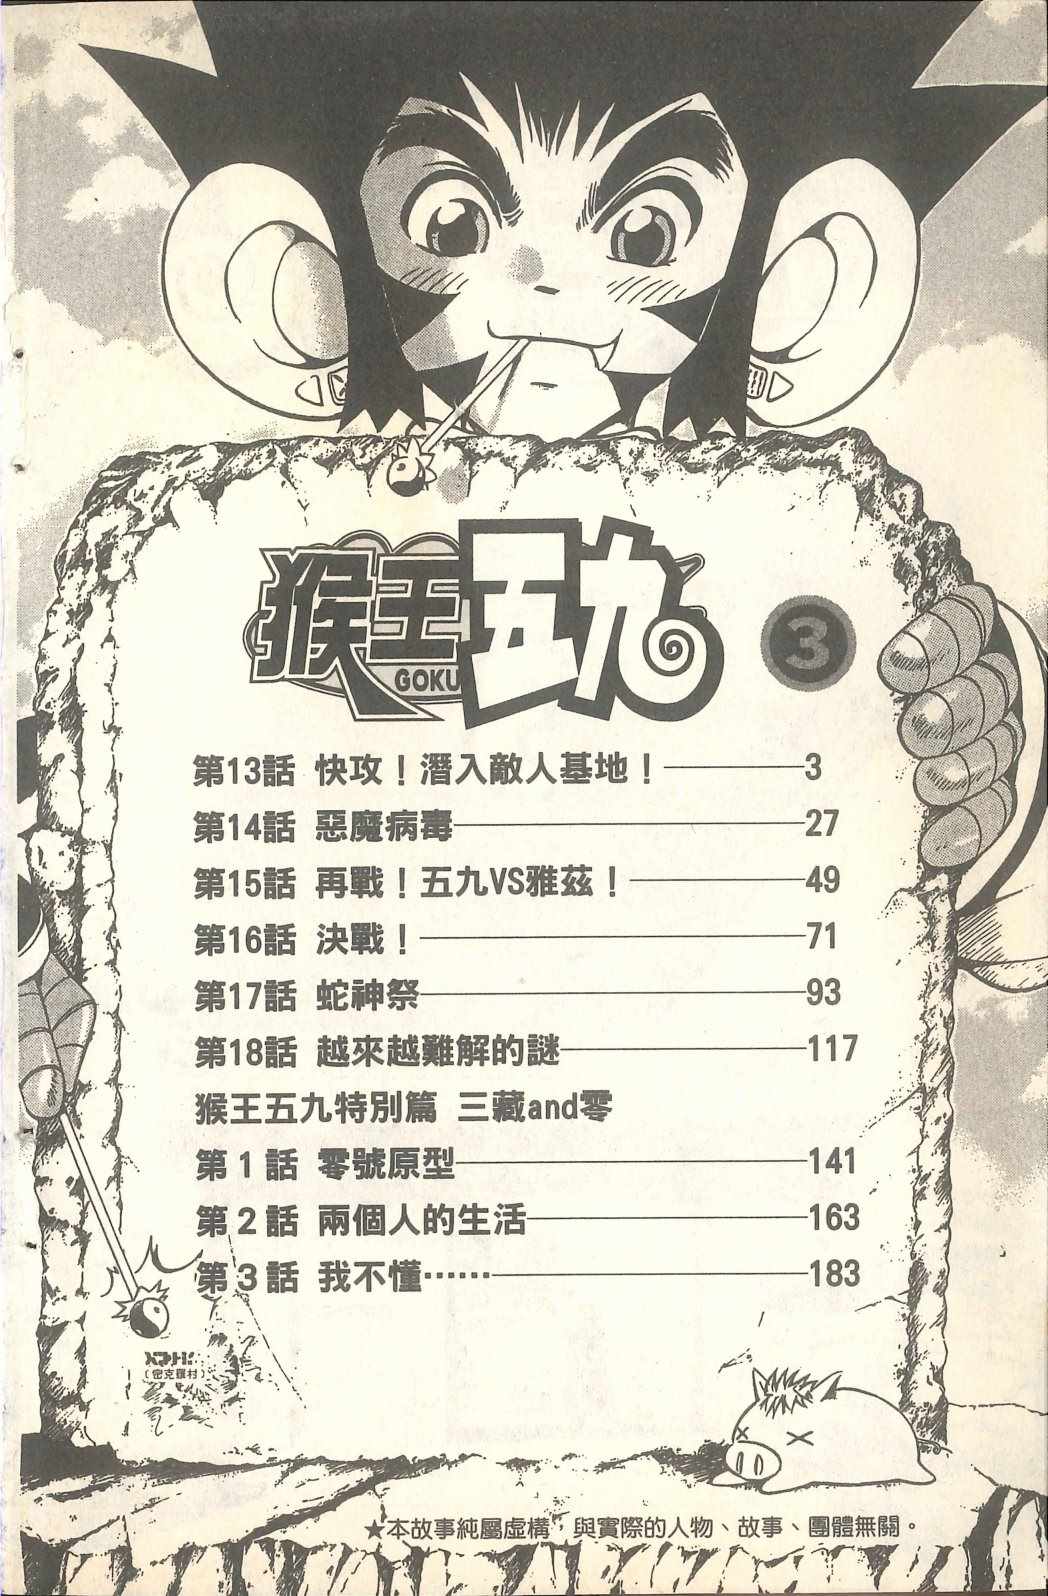 猴王五九
GOKU
3
第13話 快攻！潛入敵人基地！ 3
第14話 惡魔病毒 27
第15話 再戰！五九VS雅茲！ 49
第16話 決戰！ 71
第17話 蛇神祭 93
第18話 越來越難解的謎 117
猴王五九特別篇 三藏and零
第1話 零號原型 141
第2話 兩個人的生活 163
第3話 我不懂…… 183
（密克羅村）
★本故事純屬虛構，與實際的人物、故事、團體無關。